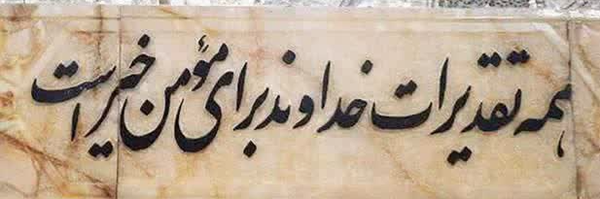 همه تقدیرات خداوند برای مؤمن خیر است